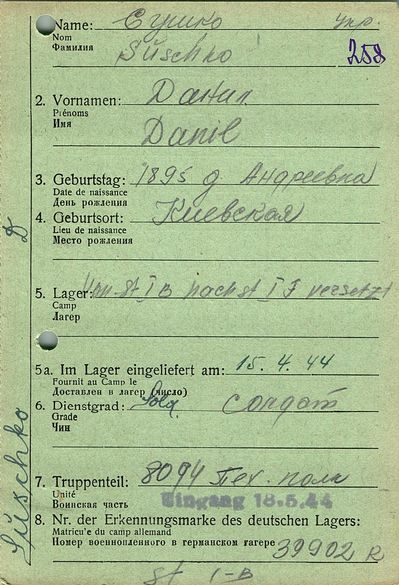 Name: Сушко Укр.
Nom
Фамилия
Süschko 258
2. Vornamen: Данил
Prénoms
Имя
Danil
3. Geburtstag: 1895 д Андреевка
Date de naissance
День рождения
4. Geburtsort: Киевская
Lieu de naissance
Место рождения
5. Lager: St I B nach St I F versetzt
Camp
Лагер
5a. Im Lager eingeliefert am: 15. 4. 44
Fournit au Camp le
Доставлен в лагер (число)
6. Dienstgrad: Sold солдат
Grade
Чин
7. Truppenteil: 8094 Пех. полк
Unité
Воинская часть
Eingang 18.5.44
8. Nr. der Erkennungsmarke des deutschen Lagers:
Matricu'e du camp allemand
Номер военнопленного в германском лагере 39902 R
St I-B
Süschko D